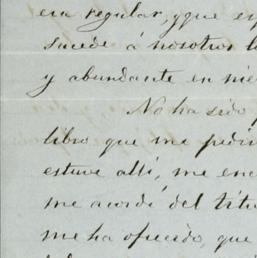 era regular, y que es
sucede á nosotros l
y abundante en nie
No ha sido
libro que me pedi
estuve allí, me en
me acordé del títu
me ha ofrecido, que